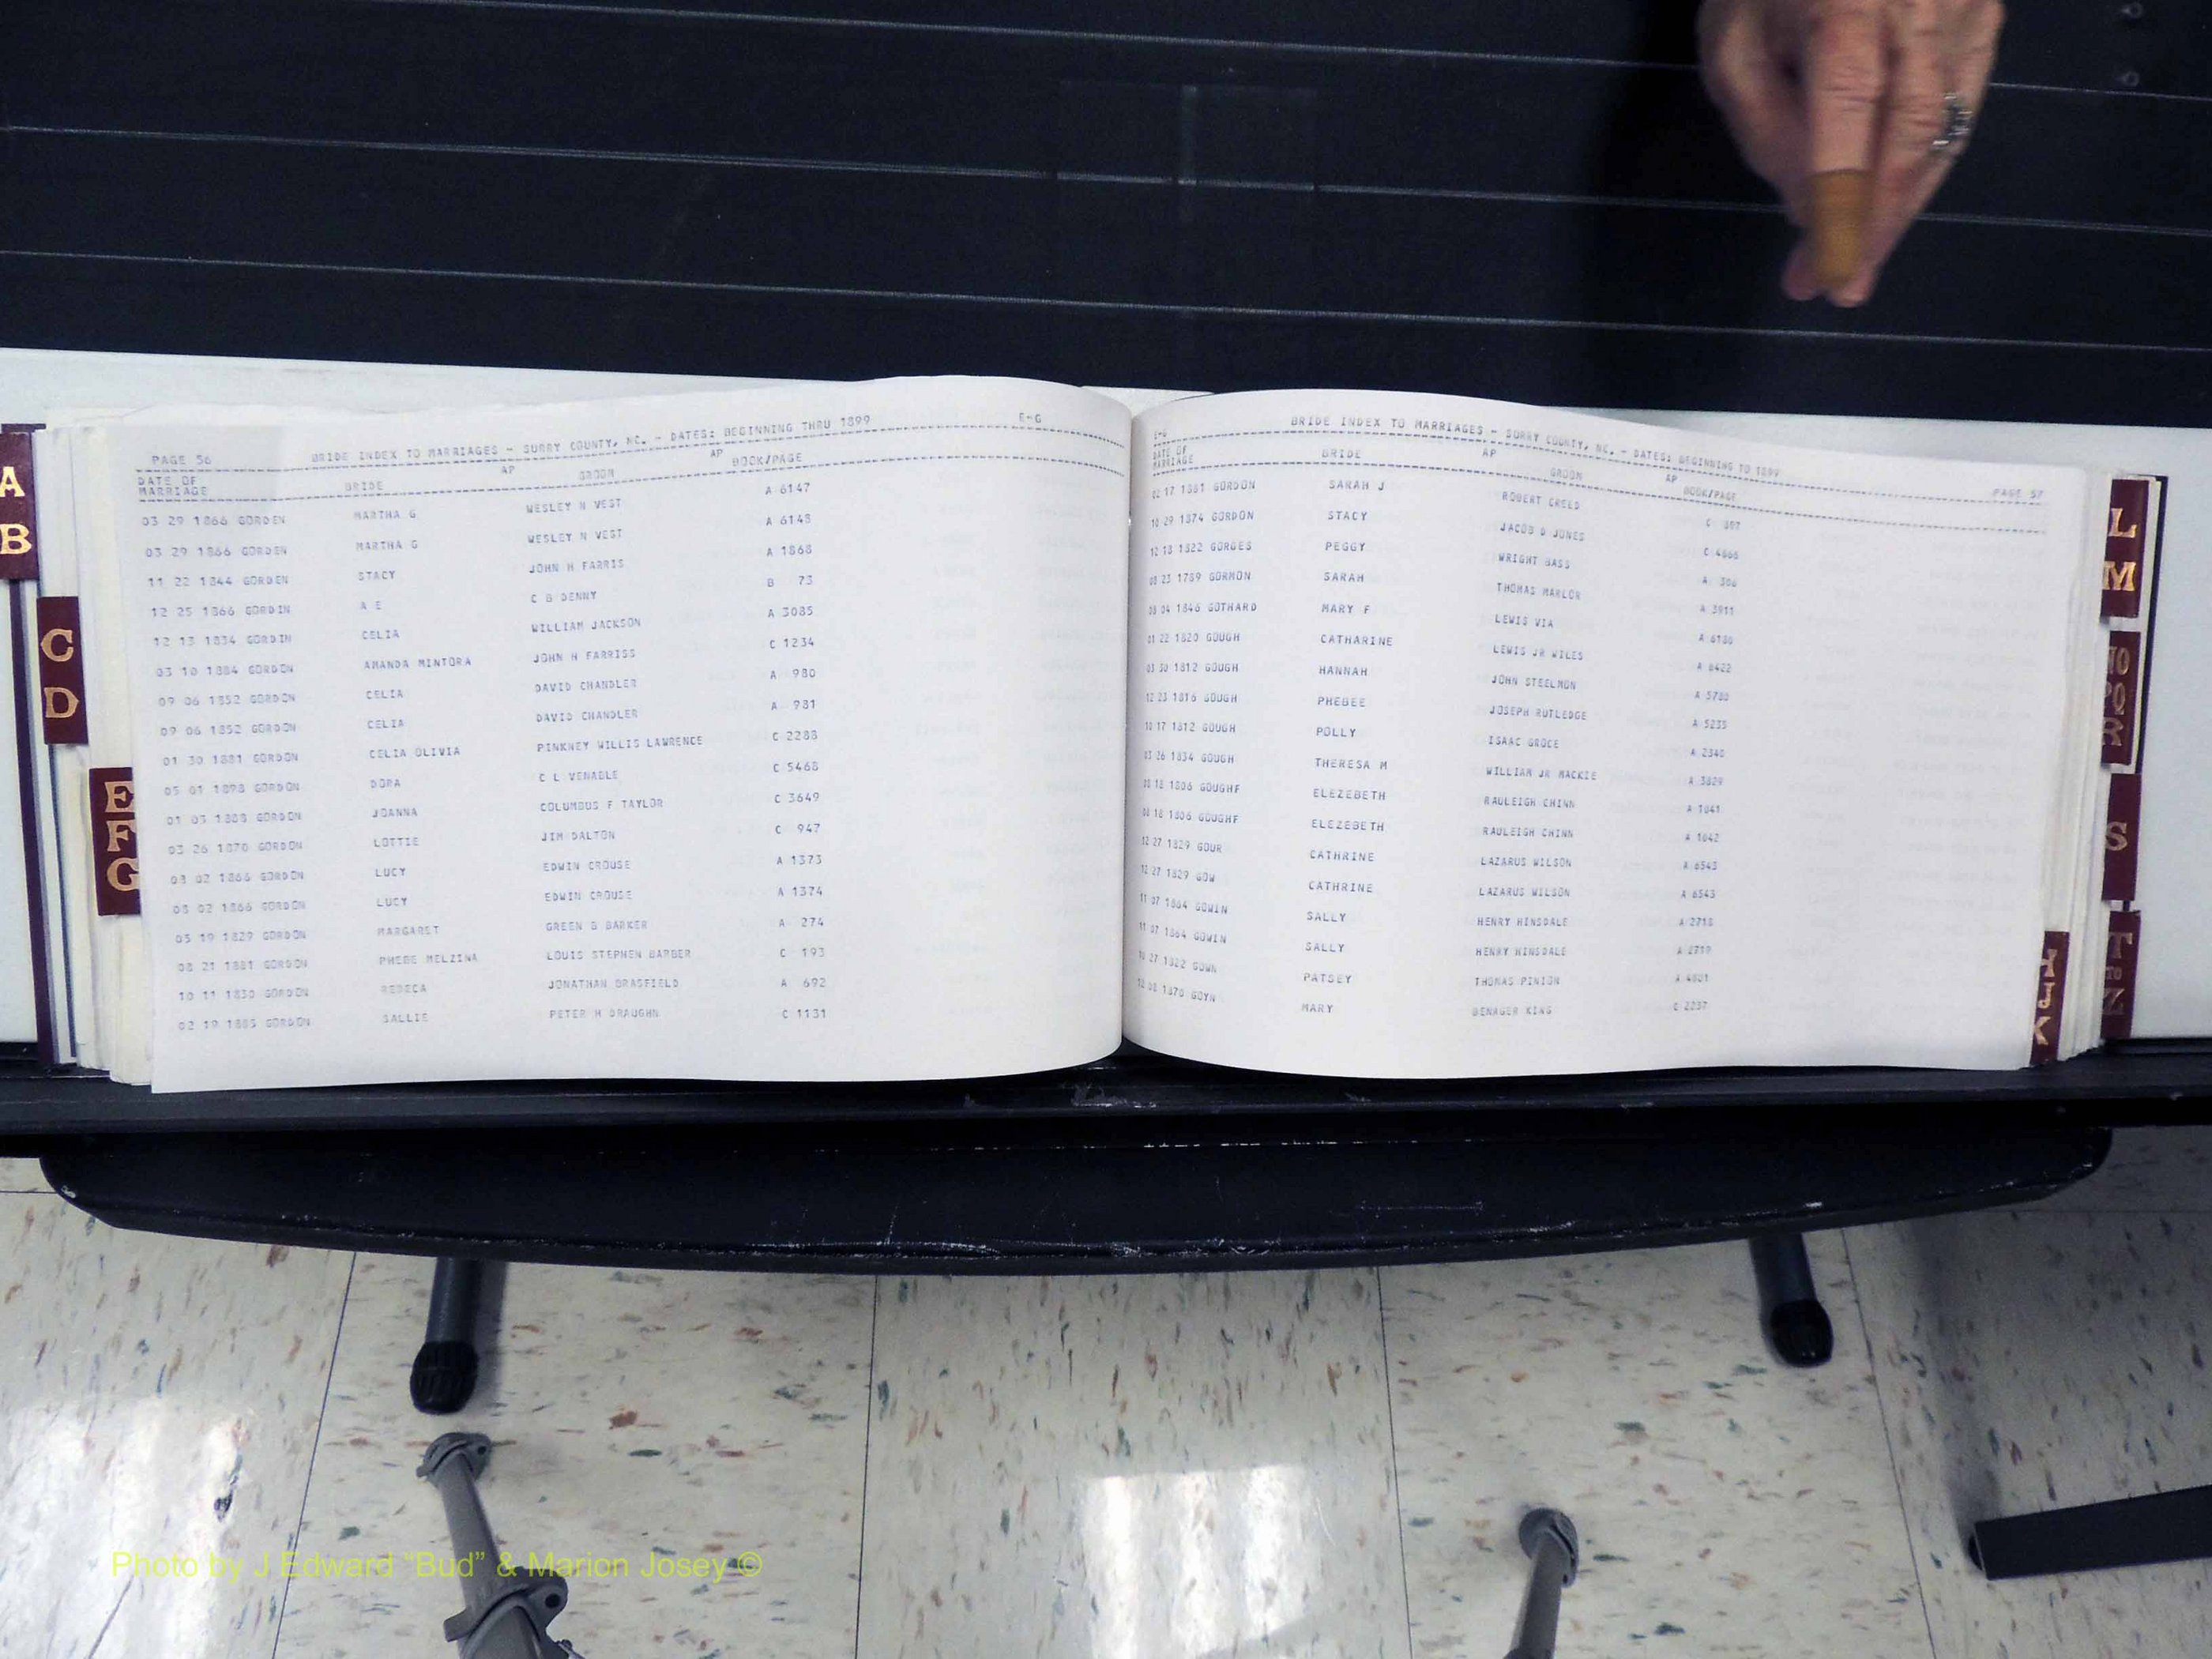 A
B
C
D
E
F
G
PAGE 56 BRIDE INDEX TO MARRIAGES - SURRY COUNTY, NC. - DATES: BEGINNING THRU 1899 E-G
DATE OF MARRIAGE BRIDE AP GROOM AP BOOK/PAGE
03 29 1866 GORDEN MARTHA G WESLEY N VEST A 6147
03 29 1866 GORDEN MARTHA G WESLEY N VEST A 6148
11 22 1844 GORDEN STACY JOHN H FARRIS A 1868
12 25 1866 GORDIN A E C B DENNY B 73
12 13 1834 GORDIN CELIA WILLIAM JACKSON A 3085
03 10 1884 GORDON AMANDA MINTORA JOHN H FARRISS C 1234
09 06 1852 GORDON CELIA DAVID CHANDLER A 980
09 06 1852 GORDON CELIA DAVID CHANDLER A 981
01 30 1881 GORDON CELIA OLIVIA PINKNEY WILLIS LAWRENCE C 2288
05 01 1898 GORDON DORA C L VENABLE C 5468
01 03 1888 GORDON JOANNA COLUMBUS F TAYLOR C 3649
03 26 1870 GORDON LOTTIE JIM DALTON C 947
08 02 1866 GORDON LUCY EDWIN CROUSE A 1373
08 02 1866 GORDON LUCY EDWIN CROUSE A 1374
05 19 1829 GORDON MARGARET GREEN B BARKER A 274
08 21 1881 GORDON PHEBE MELZINA LOUIS STEPHEN BARBER C 193
10 11 1830 GORDON REBECA JONATHAN BRASFIELD A 692
02 19 1885 GORDON SALLIE PETER H DRAUGHN C 1131
E-G BRIDE INDEX TO MARRIAGES - SURRY COUNTY, NC. - DATES: BEGINNING TO 1899 PAGE 57
DATE OF MARRIAGE BRIDE AP GROOM AP BOOK/PAGE
17 1881 GORDON SARAH J ROBERT CREED C
10 29 1874 GORDON STACY JACOB D JONES C
12 18 1822 GORGES PEGGY WRIGHT BASS A
08 23 1789 GORMON SARAH THOMAS MARLOW A 3911
08 04 1846 GOTHARD MARY F LEWIS VIA A 6180
01 22 1820 GOUGH CATHARINE LEWIS JR WILES A 6422
03 30 1812 GOUGH HANNAH JOHN STEELMON A 5780
12 23 1816 GOUGH PHEBEE JOSEPH RUTLEDGE A 5235
10 17 1812 GOUGH POLLY ISAAC GROCE A 2340
03 26 1834 GOUGH THERESA M WILLIAM JR MACKIE A 3829
08 18 1806 GOUGHF ELEZEBETH RAULEIGH CHINN A 1041
08 18 1806 GOUGHF ELEZEBETH RAULEIGH CHINN A 1042
12 27 1829 GOUR CATHRINE LAZARUS WILSON A 6543
12 27 1829 GOW CATHRINE LAZARUS WILSON A 6543
11 07 1864 GOWIN SALLY HENRY HINSDALE A 2718
11 07 1864 GOWIN SALLY HENRY HINSDALE A 2719
10 27 1822 GOWN PATSEY THOMAS PINION A 4801
08 1870 GOYN MARY BENAGER KING C 2237
L
M
S
T
TO
Z
Photo by J Edward "Bud" & Marion Josey ©